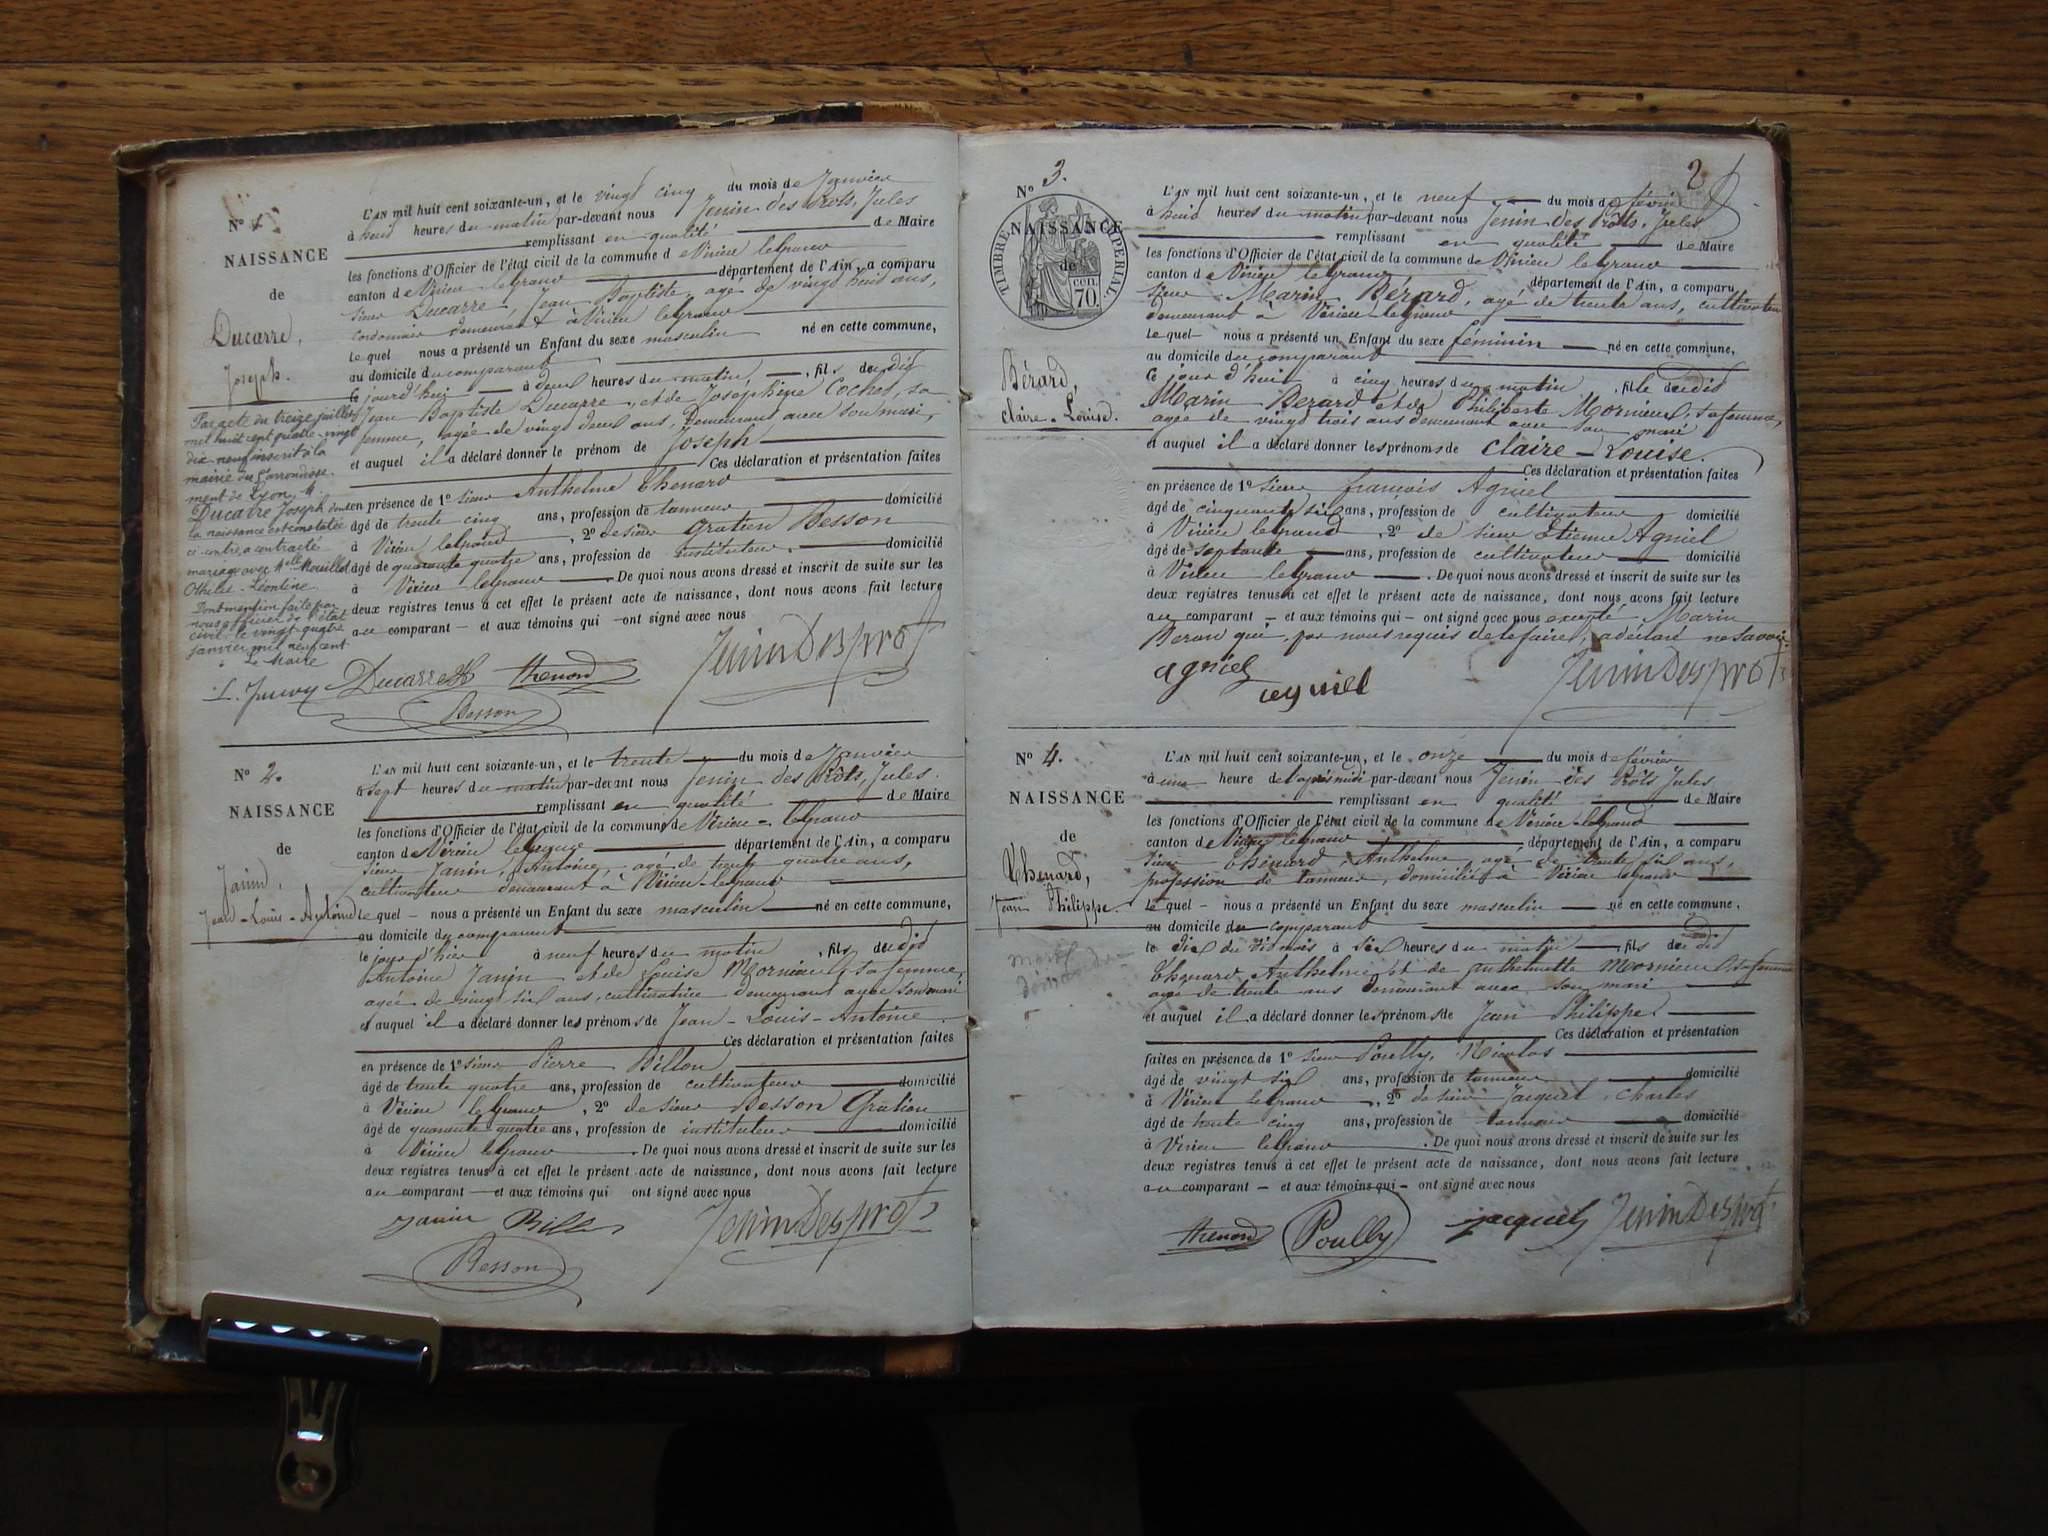 N° 1.
NAISSANCE
de
Ducarre,
Joseph.
Par acte du treize juillet
mil huit cent quatre-vingt
dix neuf inscrit à la
mairie du arrondisse-
ment de Lyon, M.
Ducarre Joseph dont
la naissance est constatée
ci-contre a contracté
mariage avec Melle Mouillot
Othilie Léontine
Dont mention faite par
nous officier de l'état
civil le vingt quatre
janvier mil neuf cent
Le Maire
L'AN mil huit cent soixante-un, et le vingt cinq du mois de Janvier
à huit heures du matin par-devant nous Jenin des Prôts, Jules
remplissant en qualité de Maire
les fonctions d'Officier de l'état civil de la commune de Virieu legrand
canton de Virieu legrand département de l'Ain, a comparu
sieur Ducarre, Jean Baptiste, agé de vingt huit ans,
cordonnier demeurant à Virieu legrand
lequel nous a présenté un Enfant du sexe masculin né en cette commune,
au domicile du comparant
ce jourd'hui à deux heures du matin, fils dudit
Jean Baptiste Ducarre, et de Joséphine Cochet, sa
femme, agée de vingt deux ans, demeurant avec son mari,
et auquel il a déclaré donner le prénom de Joseph
Ces déclaration et présentation faites
en présence de 1° sieur Anthelme Thenard
âgé de trente cinq ans, profession de tanneur domicilié
à Virieu legrand, 2° de sieur Gratien Besson
âgé de quarante quatre ans, profession de instituteur, domicilié
à Virieu legrand. De quoi nous avons dressé et inscrit de suite sur les
deux registres tenus à cet effet le présent acte de naissance, dont nous avons fait lecture
au comparant et aux témoins qui ont signé avec nous
Ducarre Thenard Jenin Desprots
Besson
N° 2.
NAISSANCE
de
Janin,
Jean-Louis-Antoine
L'AN mil huit cent soixante-un, et le trente du mois de Janvier
à sept heures du matin par-devant nous Jenin des Prôts, Jules.
remplissant en qualité de Maire
les fonctions d'Officier de l'état civil de la commune de Virieu-legrand
canton de Virieu legrand département de l'Ain, a comparu
sieur Janin, Antoine, agé de trente quatre ans,
cultivateur demeurant à Virieu-legrand
lequel nous a présenté un Enfant du sexe masculin né en cette commune,
au domicile du comparant
le jour d'hier à neuf heures du matin, fils dudit
Antoine Janin et de Louise Mornieux, sa femme,
agée de vingt six ans, cultivatrice demeurant avec son mari
et auquel il a déclaré donner les prénoms de Jean-Louis-Antoine.
Ces déclaration et présentation faites
en présence de 1° sieur Pierre Billon
âgé de trente quatre ans, profession de cultivateur domicilié
à Virieu legrand, 2° de sieur Besson Gratien
âgé de quarante quatre ans, profession de instituteur domicilié
à Virieu legrand. De quoi nous avons dressé et inscrit de suite sur les
deux registres tenus à cet effet le présent acte de naissance, dont nous avons fait lecture
au comparant et aux témoins qui ont signé avec nous
Janin Billon Jenin Desprots
Besson
2
N° 3.
NAISSANCE
de
TIMBRE IMPERIAL
70 cen.
Bérard,
Claire-Louise.
L'AN mil huit cent soixante-un, et le neuf du mois de février
à huit heures du matin par-devant nous Jenin des Prôts, Jules
remplissant en qualité de Maire
les fonctions d'Officier de l'état civil de la commune de Virieu legrand
canton de Virieu legrand département de l'Ain, a comparu
sieur Marin Bérard, agé de trente ans, cultivateur
demeurant à Virieu-legrand
lequel nous a présenté un Enfant du sexe féminin né en cette commune,
au domicile du comparant
ce jour d'hui à cinq heures du matin, fille dudit
Marin Berard et de Philiberte Mornieux, sa femme,
agée de vingt trois ans demeurant avec son mari
et auquel il a déclaré donner les prénoms de Claire-Louise.
Ces déclaration et présentation faites
en présence de 1° sieur françois Agniel
âgé de cinquante six ans, profession de cultivateur domicilié
à Virieu legrand, 2° de sieur Etienne Agniel
âgé de septante ans, profession de cultivateur domicilié
à Virieu legrand. De quoi nous avons dressé et inscrit de suite sur les
deux registres tenus à cet effet le présent acte de naissance, dont nous avons fait lecture
au comparant et aux témoins qui ont signé avec nous excepté Marin
Berard qui, par nous requis de le faire, a déclaré ne savoir.
agniel agniel Jenin Desprots
N° 4.
NAISSANCE
de
Thenard,
Jean Philippe.
L'AN mil huit cent soixante-un, et le onze du mois de février
à une heure de l'après midi par-devant nous Jenin des Prôts Jules
remplissant en qualité de Maire
les fonctions d'Officier de l'état civil de la commune de Virieu-legrand
canton de Virieu legrand département de l'Ain, a comparu
sieur Thénard, Anthelme, agé de trente six ans,
profession de tanneur, domicilié à Virieu legrand
lequel nous a présenté un Enfant du sexe masculin né en cette commune,
au domicile du comparant
le dix du dit mois à six heures du matin, fils dudit
Thenard Anthelme et de Anthelmette Mornieux sa femme
agée de trente ans demeurant avec son mari
et auquel il a déclaré donner les prénoms de Jean Philippe.
Ces déclaration et présentation
faites en présence de 1° sieur Poully, Nicolas
âgé de vingt six ans, profession de tanneur domicilié
à Virieu legrand, 2° de sieur Jacquet, Charles
âgé de trente cinq ans, profession de tanneur domicilié
à Virieu legrand. De quoi nous avons dressé et inscrit de suite sur les
deux registres tenus à cet effet le présent acte de naissance, dont nous avons fait lecture
au comparant et aux témoins qui ont signé avec nous
Thenard Poully Jacquet Jenin Desprots